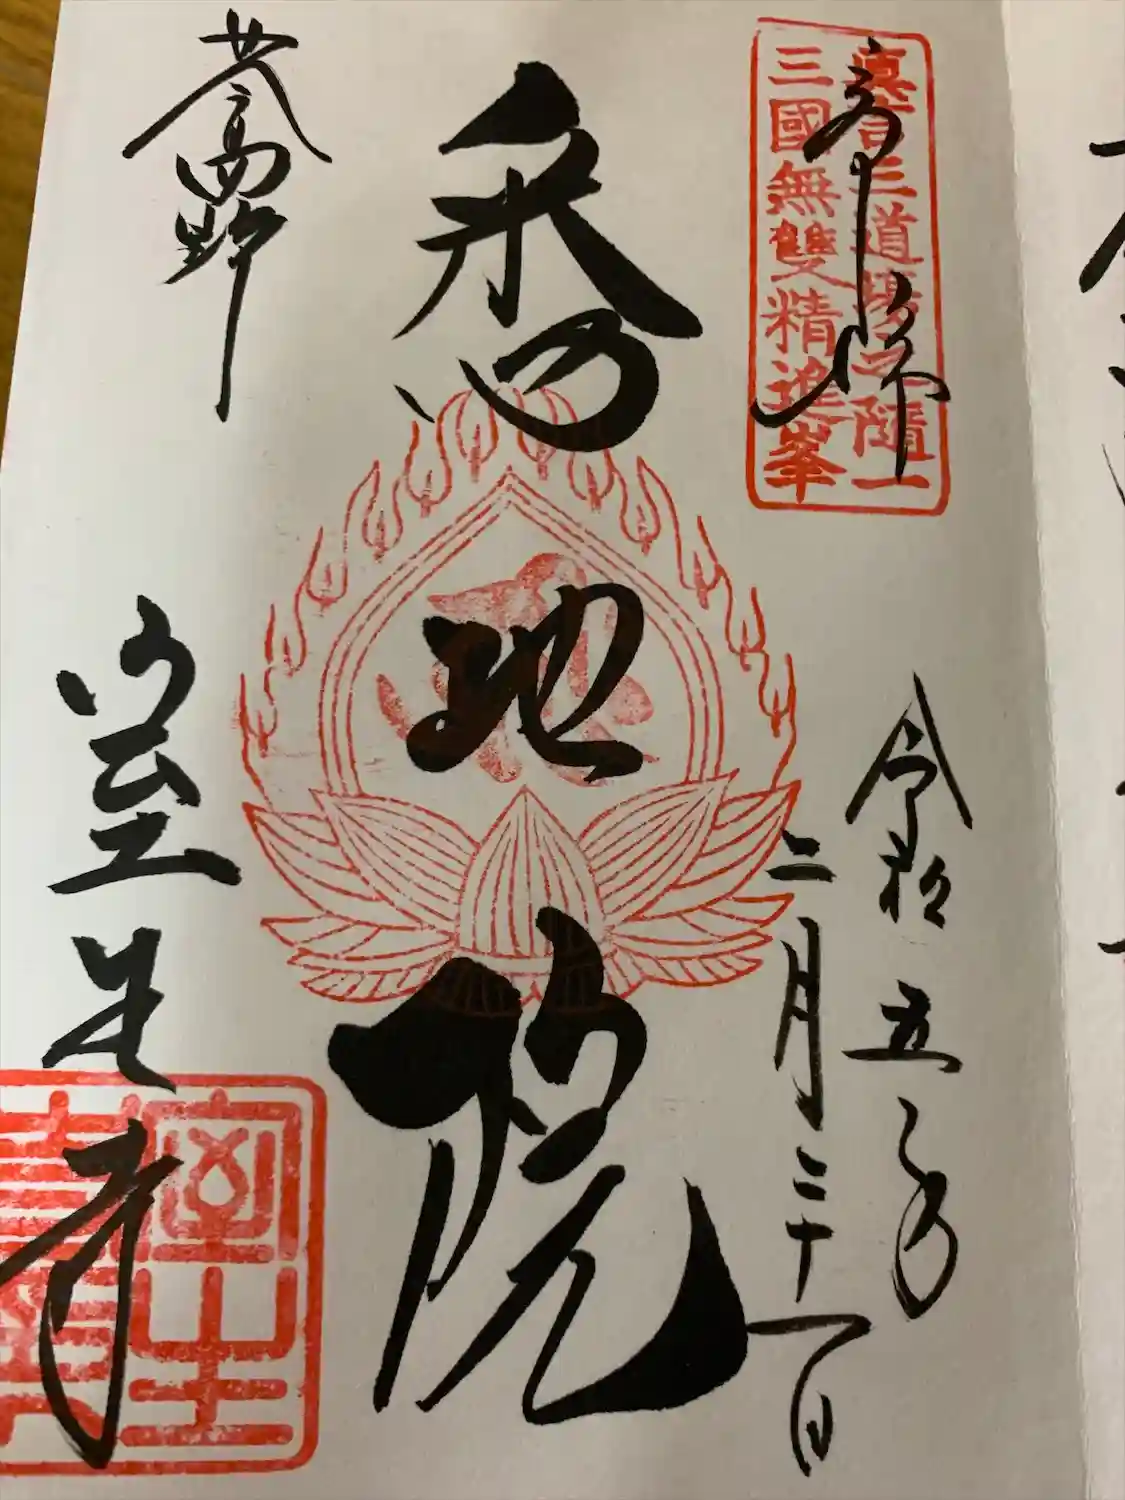 奉拝
真言三道場之隨一
三國無雙精進峯
令和五年
二月二十一日
悉地院
女人高野
室生寺